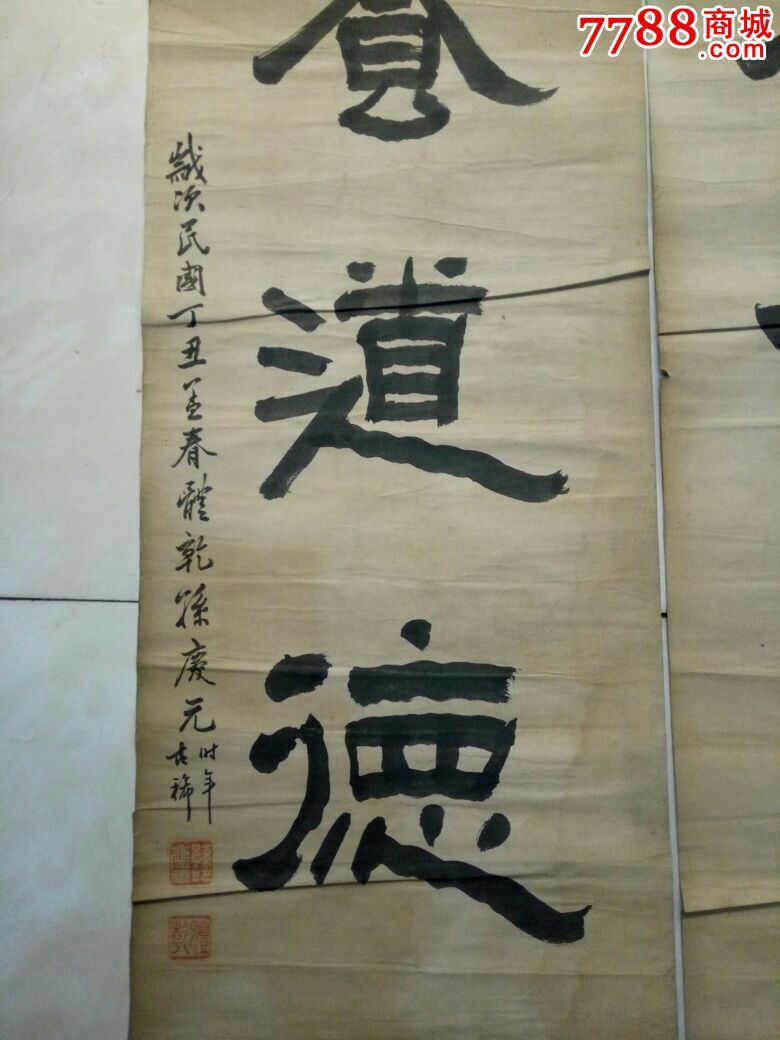 7788商城
.com
食
道
德
歲次民國丁丑孟春體乾孫慶元時年
古稀